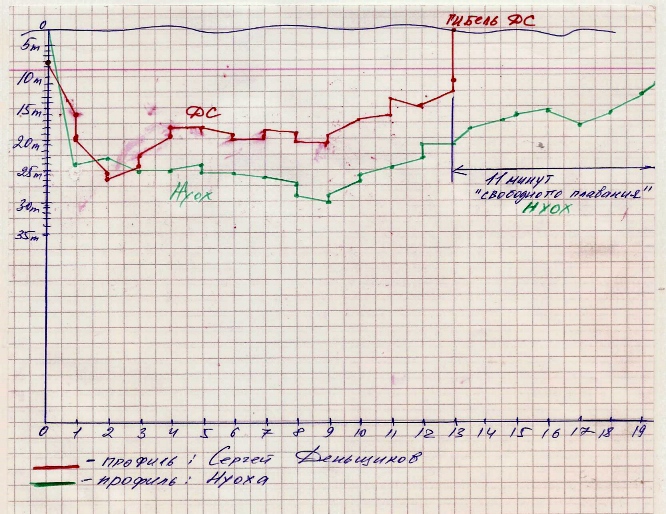 Гибель ДС
0
5m
10m
15m
20m
25m
30m
35m
ДС
Нуох
11 минут
"свободного плавания"
Нуох
0 1 2 3 4 5 6 7 8 9 10 11 12 13 14 15 16 17 18 19
- профиль: Сергей Деньщиков
- профиль: Нуоха